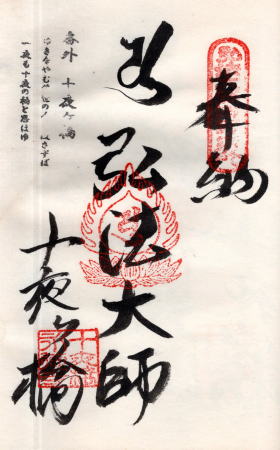 奉納
弘法大師
十夜ヶ橋
番外 十夜ヶ橋
きなやむ の さずば
一夜も十夜の橋と思ほゆ